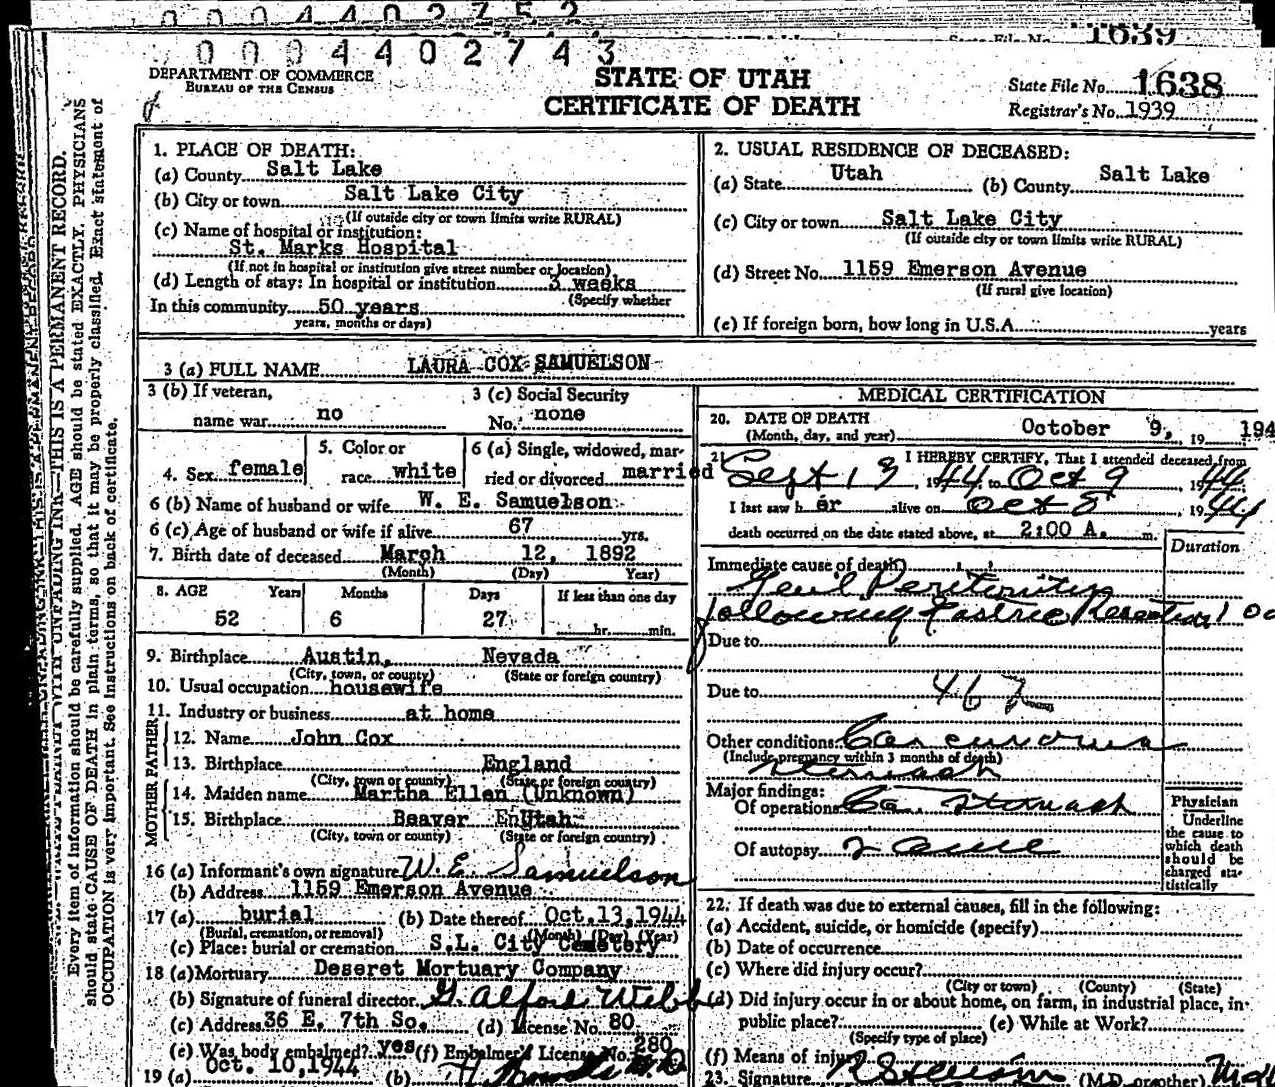 0 0 0 4 4 0 2 7 5 2
State File No. 1639
0 0 0 4 4 0 2 7 4 3
DEPARTMENT OF COMMERCE
BUREAU OF THE CENSUS
STATE OF UTAH
CERTIFICATE OF DEATH
State File No. 1638
Registrar's No. 1939
THIS IS A PERMANENT RECORD.
Every item of information should be carefully supplied. AGE should be stated EXACTLY. PHYSICIANS
should state CAUSE OF DEATH in plain terms, so that it may be properly classified. Exact statement of
OCCUPATION is very important. See instructions on back of certificate.
1. PLACE OF DEATH:
(a) County Salt Lake
(b) City or town Salt Lake City
(If outside city or town limits write RURAL)
(c) Name of hospital or institution:
St. Marks Hospital
(If not in hospital or institution give street number or location)
(d) Length of stay: In hospital or institution 3 weeks
(Specify whether
In this community 50 years
years, months or days)
2. USUAL RESIDENCE OF DECEASED:
(a) State Utah (b) County Salt Lake
(c) City or town Salt Lake City
(If outside city or town limits write RURAL)
(d) Street No. 1159 Emerson Avenue
(If rural give location)
(e) If foreign born, how long in U.S.A. years
3 (a) FULL NAME LAURA COX SAMUELSON
3 (b) If veteran,
name war no
3 (c) Social Security
No. none
4. Sex female
5. Color or
race white
6 (a) Single, widowed, mar-
ried or divorced married
6 (b) Name of husband or wife W. E. Samuelson
6 (c) Age of husband or wife if alive 67 yrs.
7. Birth date of deceased March 12, 1892
(Month) (Day) Year)
8. AGE Years Months Days If less than one day
52 6 27 hr. min.
9. Birthplace Austin, Nevada
(City, town, or county) (State or foreign country)
10. Usual occupation housewife
11. Industry or business at home
FATHER
12. Name John Cox
13. Birthplace England
(City, town or county) (State or foreign country)
MOTHER
14. Maiden name Martha Ellen (Unknown)
15. Birthplace Beaver Utah
(City, town or county) (State or foreign country)
16 (a) Informant's own signature W. E. Samuelson
(b) Address 1159 Emerson Avenue
17 (a) burial (b) Date thereof Oct. 13, 1944
(Burial, cremation, or removal) (Month) (Day) (Year)
(c) Place: burial or cremation S.L. City Cemetery
18 (a) Mortuary Deseret Mortuary Company
(b) Signature of funeral director G. Alford Webb
(c) Address 36 E. 7th So. (d) License No. 80
(e) Was body embalmed? yes (f) Embalmer's License No. 280
19 (a) Oct. 10, 1944 (b)
MEDICAL CERTIFICATION
20. DATE OF DEATH
(Month, day, and year) October 9, 19 194
21 I HEREBY CERTIFY, That I attended deceased from
Sept 13, 1944 to Oct 9 1944
I last saw her alive on Oct 8, 1944
death occurred on the date stated above, at 2:00 A. m.
Duration
Immediate cause of death
Gen'l Peritonitis
following Gastric Resection
Due to
Due to 46
Other conditions Carcinoma
(Include pregnancy within 3 months of death)
stomach
Major findings:
Of operations Ca. Stomach
Of autopsy
Physician
Underline
the cause to
which death
should be
charged sta-
tistically
22. If death was due to external causes, fill in the following:
(a) Accident, suicide, or homicide (specify)
(b) Date of occurrence
(c) Where did injury occur?
(City or town) (County) (State)
(d) Did injury occur in or about home, on farm, in industrial place, in
public place? (e) While at Work?
(Specify type of place)
(f) Means of injury
23. Signature (M.D. or other)